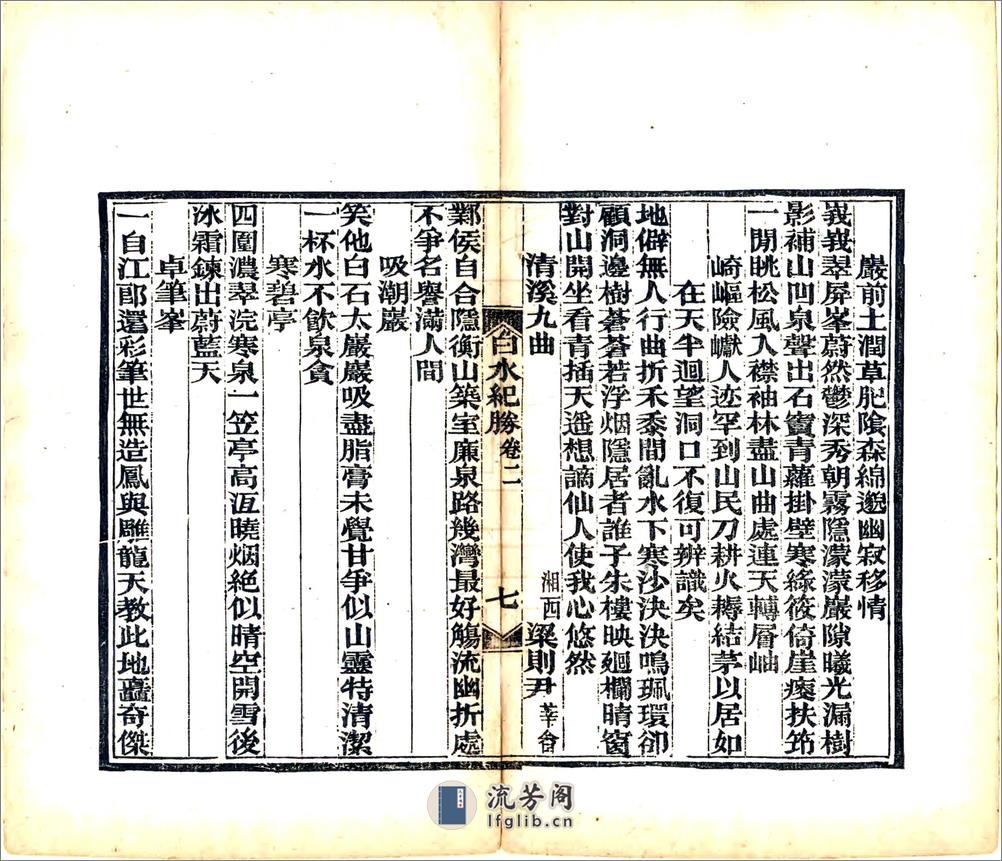 巖前土潤草肥陰森綿邈幽寂移情
峩峩翠屏峯蔚然鬱深秀朝霧隱濛濛巖隙曦光漏樹
影補山凹泉聲出石竇青蘿掛壁寒綠筱倚崖瘦扶筇
一閒眺松風入襟袖林盡山曲處連天轉層岫
崎嶇險巇人迹罕到山民刀耕火耨結茅以居如
在天半迴望洞口不復可辨識矣
地僻無人行曲折禾黍間亂水下寒沙決決鳴珮環卻
顧洞邊樹蒼蒼若浮烟隱居者誰子朱樓映廻欄晴窗
對山開坐看青插天遥想謫仙人使我心悠然
清溪九曲
湘西 梁則尹 莘畬
鄴侯自合隱衡山築室廉泉路幾灣最好觴流幽折處
不爭名譽滿人間
吸潮巖
笑他白石太巖巖吸盡脂膏未覺甘爭似山靈特清潔
一杯水不飲泉貪
寒碧亭
四圍濃翠浣寒泉一笠亭高冱曉烟絶似晴空開雪後
冰霜鍊出蔚藍天
卓筆峯
一自江郎還彩筆世無造鳳與雕龍天教此地矗奇傑
白水紀勝 卷二
七
流芳阁
lfglib.cn